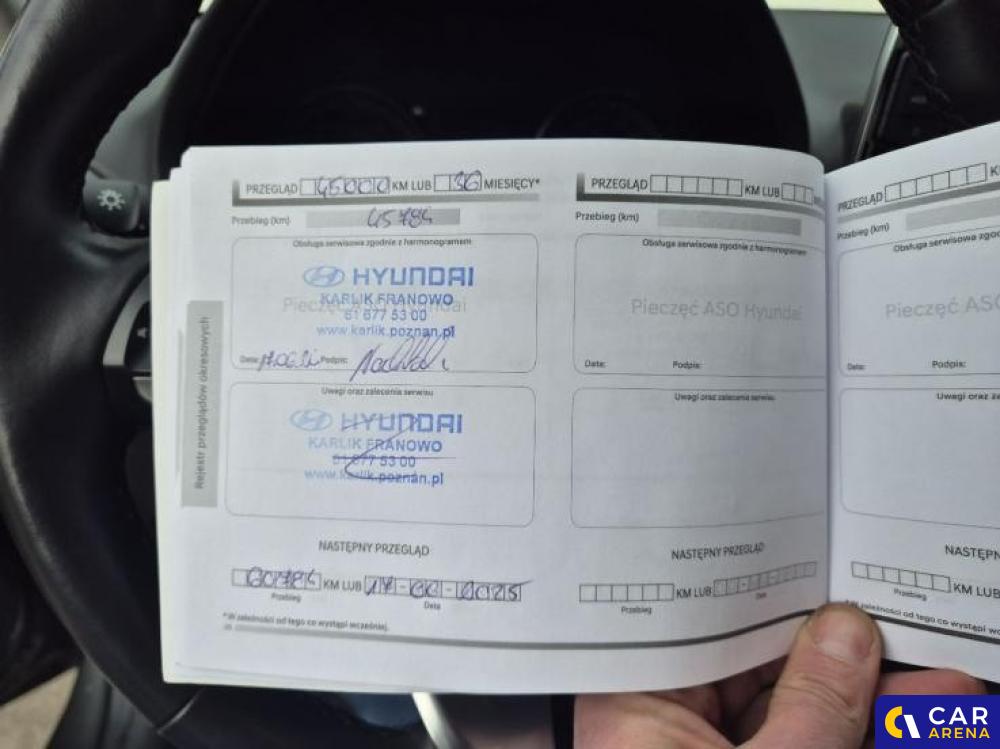 PRZEGLĄD 45000 KM LUB 36 MIESIĘCY*
Przebieg (km) 45784
Obsługa serwisowa zgodnie z harmonogramem
Pieczęć ASO Hyundai
HYUNDAI
KARLIK FRANOWO
61 677 53 00
www.karlik.poznan.pl
Data: Podpis:
Uwagi oraz zalecenia serwisu
HYUNDAI
KARLIK FRANOWO
61 677 53 00
www.karlik.poznan.pl
NASTĘPNY PRZEGLĄD
60784 KM LUB
Przebieg Data
*W zależności od tego co wystąpi wcześniej.
Rejestr przeglądów okresowych
PRZEGLĄD KM LUB
Przebieg (km)
Obsługa serwisowa zgodnie z harmonogramem
Pieczęć ASO Hyundai
Data: Podpis:
Uwagi oraz zalecenia serwisu
NASTĘPNY PRZEGLĄD
KM LUB
Przebieg Data
PRZEGLĄD K
Przebieg (km)
Obsługa serwisowa zgo
Pieczęć ASO
Data: Podpis:
Uwagi oraz za
NASTĘPN
KM LUB
Przebieg
*W zależności od tego co wystąpi wc
CAR
ARENA